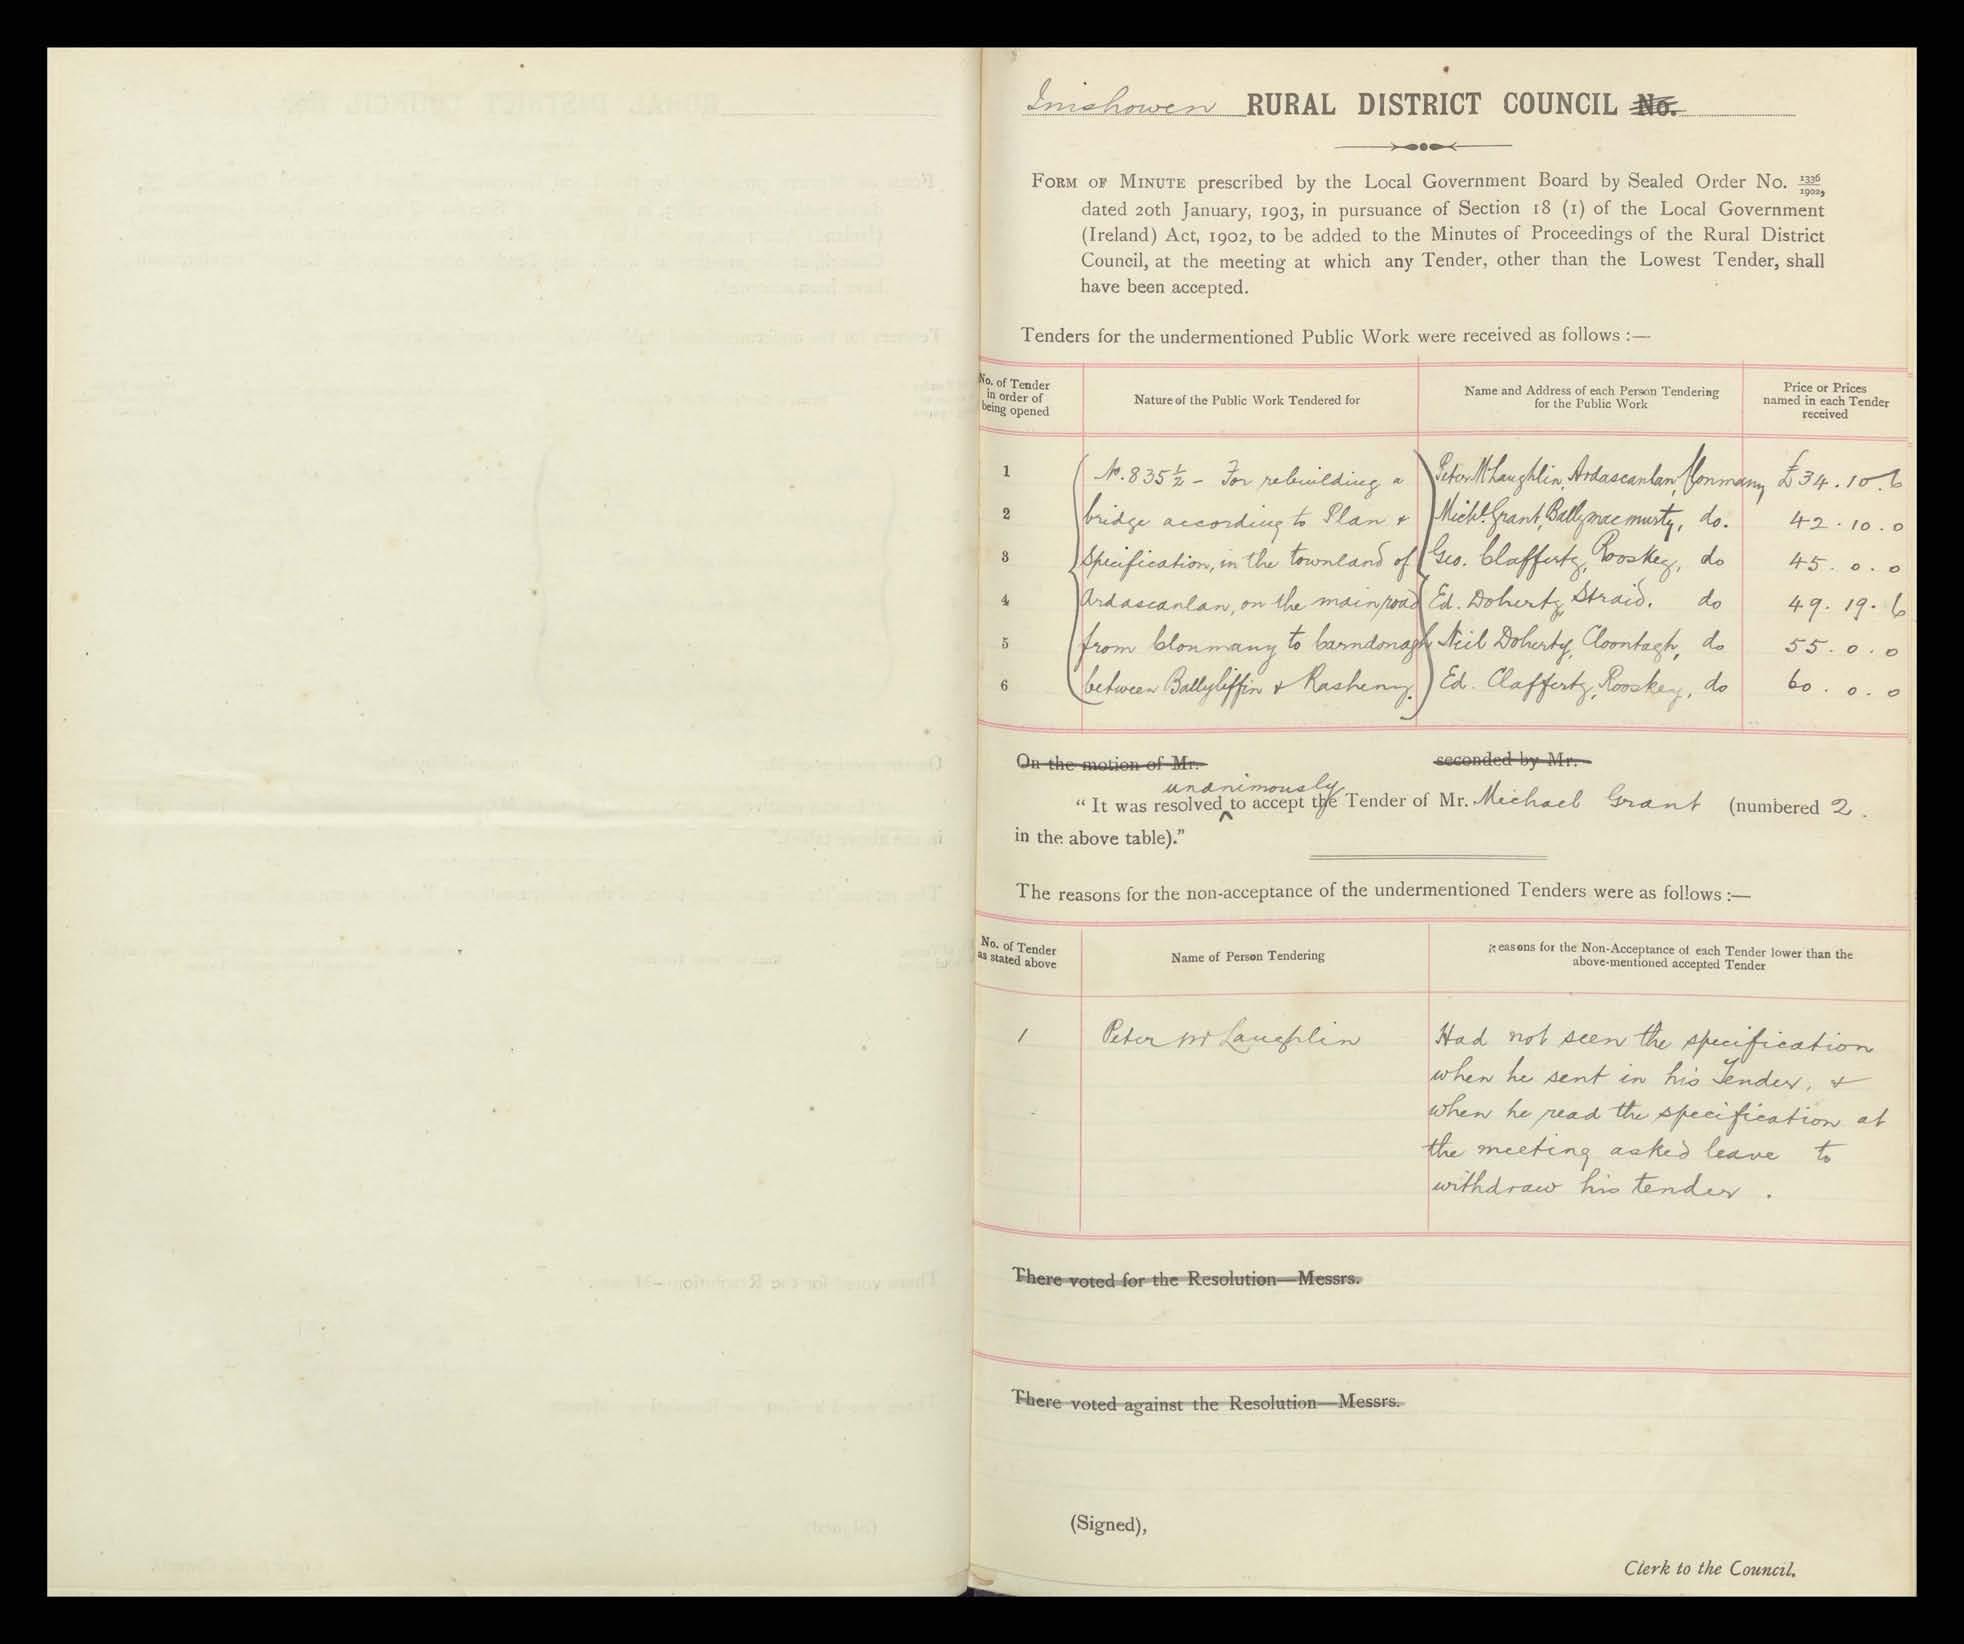 Inishowen RURAL DISTRICT COUNCIL No.
FORM OF MINUTE prescribed by the Local Government Board by Sealed Order No. 1336/1902,
dated 20th January, 1903, in pursuance of Section 18 (1) of the Local Government
(Ireland) Act, 1902, to be added to the Minutes of Proceedings of the Rural District
Council, at the meeting at which any Tender, other than the Lowest Tender, shall
have been accepted.
Tenders for the undermentioned Public Work were received as follows :—
No. of Tender
in order of
being opened
Nature of the Public Work Tendered for
Name and Address of each Person Tendering
for the Public Work
Price or Prices
named in each Tender
received
1 No. 835½ - For rebuilding a Peter McLaughlin, Ardascanlan, Clonmany £34 . 10 . 6
2 bridge according to Plan & Michl. Grant, Ballymacmurty, do. 42 . 10 . 0
3 Specification, in the townland of Geo. Clafferty, Rooskey, do 45 . 0 . 0
4 Ardascanlan, on the main road Ed. Doherty, Straid. do 49 . 19 . 6
5 from Clonmany to Carndonagh Neil Doherty, Cloontagh, do 55 . 0 . 0
6 between Ballyliffin & Rasheny. Ed. Clafferty, Rooskey, do 60 . 0 . 0
On the motion of Mr. seconded by Mr.
unanimously
“ It was resolved to accept the Tender of Mr. Michael Grant (numbered 2.
in the above table).”
The reasons for the non-acceptance of the undermentioned Tenders were as follows :—
No. of Tender
as stated above
Name of Person Tendering
Reasons for the Non-Acceptance of each Tender lower than the
above-mentioned accepted Tender
1 Peter McLaughlin Had not seen the specification
when he sent in his Tender, &
when he read the specification at
the meeting asked leave to
withdraw his tender .
There voted for the Resolution—Messrs.
There voted against the Resolution—Messrs.
(Signed),
Clerk to the Council.